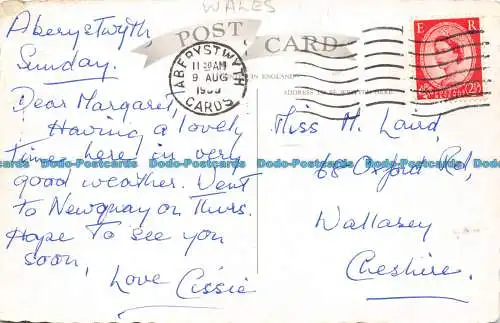 WALES
POST CARD
Aberystwyth
Sunday.
Dear Margaret,
Having a lovely
time here in very
good weather. Went
to Newquay on Thurs.
Hope to see you
soon,
Love Cissie
ABERYSTWYTH
AM
9 AUG
CARDS
E R
2½
IN ENGLAND
ADDRESS
HERE
Miss M. Laird,
68 Oxford Rd,
Wallasey
Cheshire.
Dodo-Postcards Dodo-Postcards Dodo-Postcards Dodo-Postcards